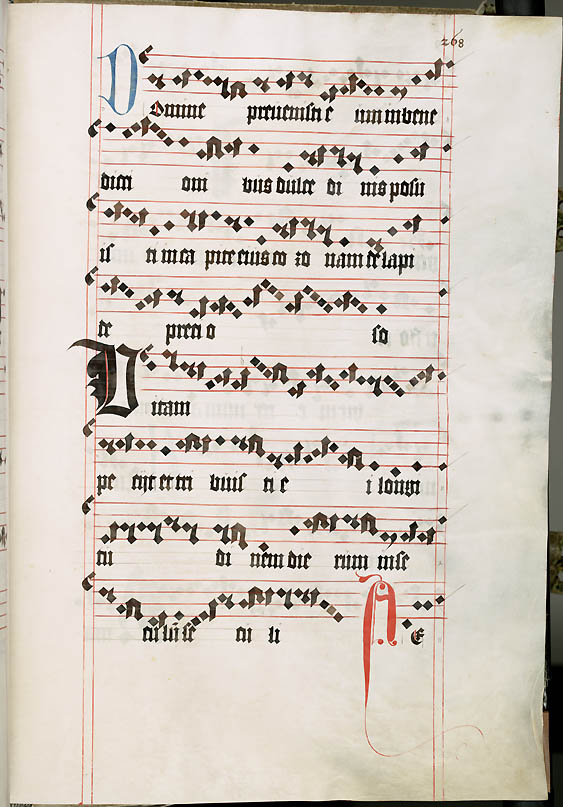 268
Domine preuenisti e um in bene
dicti oni bus dulce di nis posu
is ti in ca pite eius co ro nam de lapi
de precio so
Uitam
pe tijt et tri buis ti e i longi
tu di nem die rum in se
culū se cu li
A E